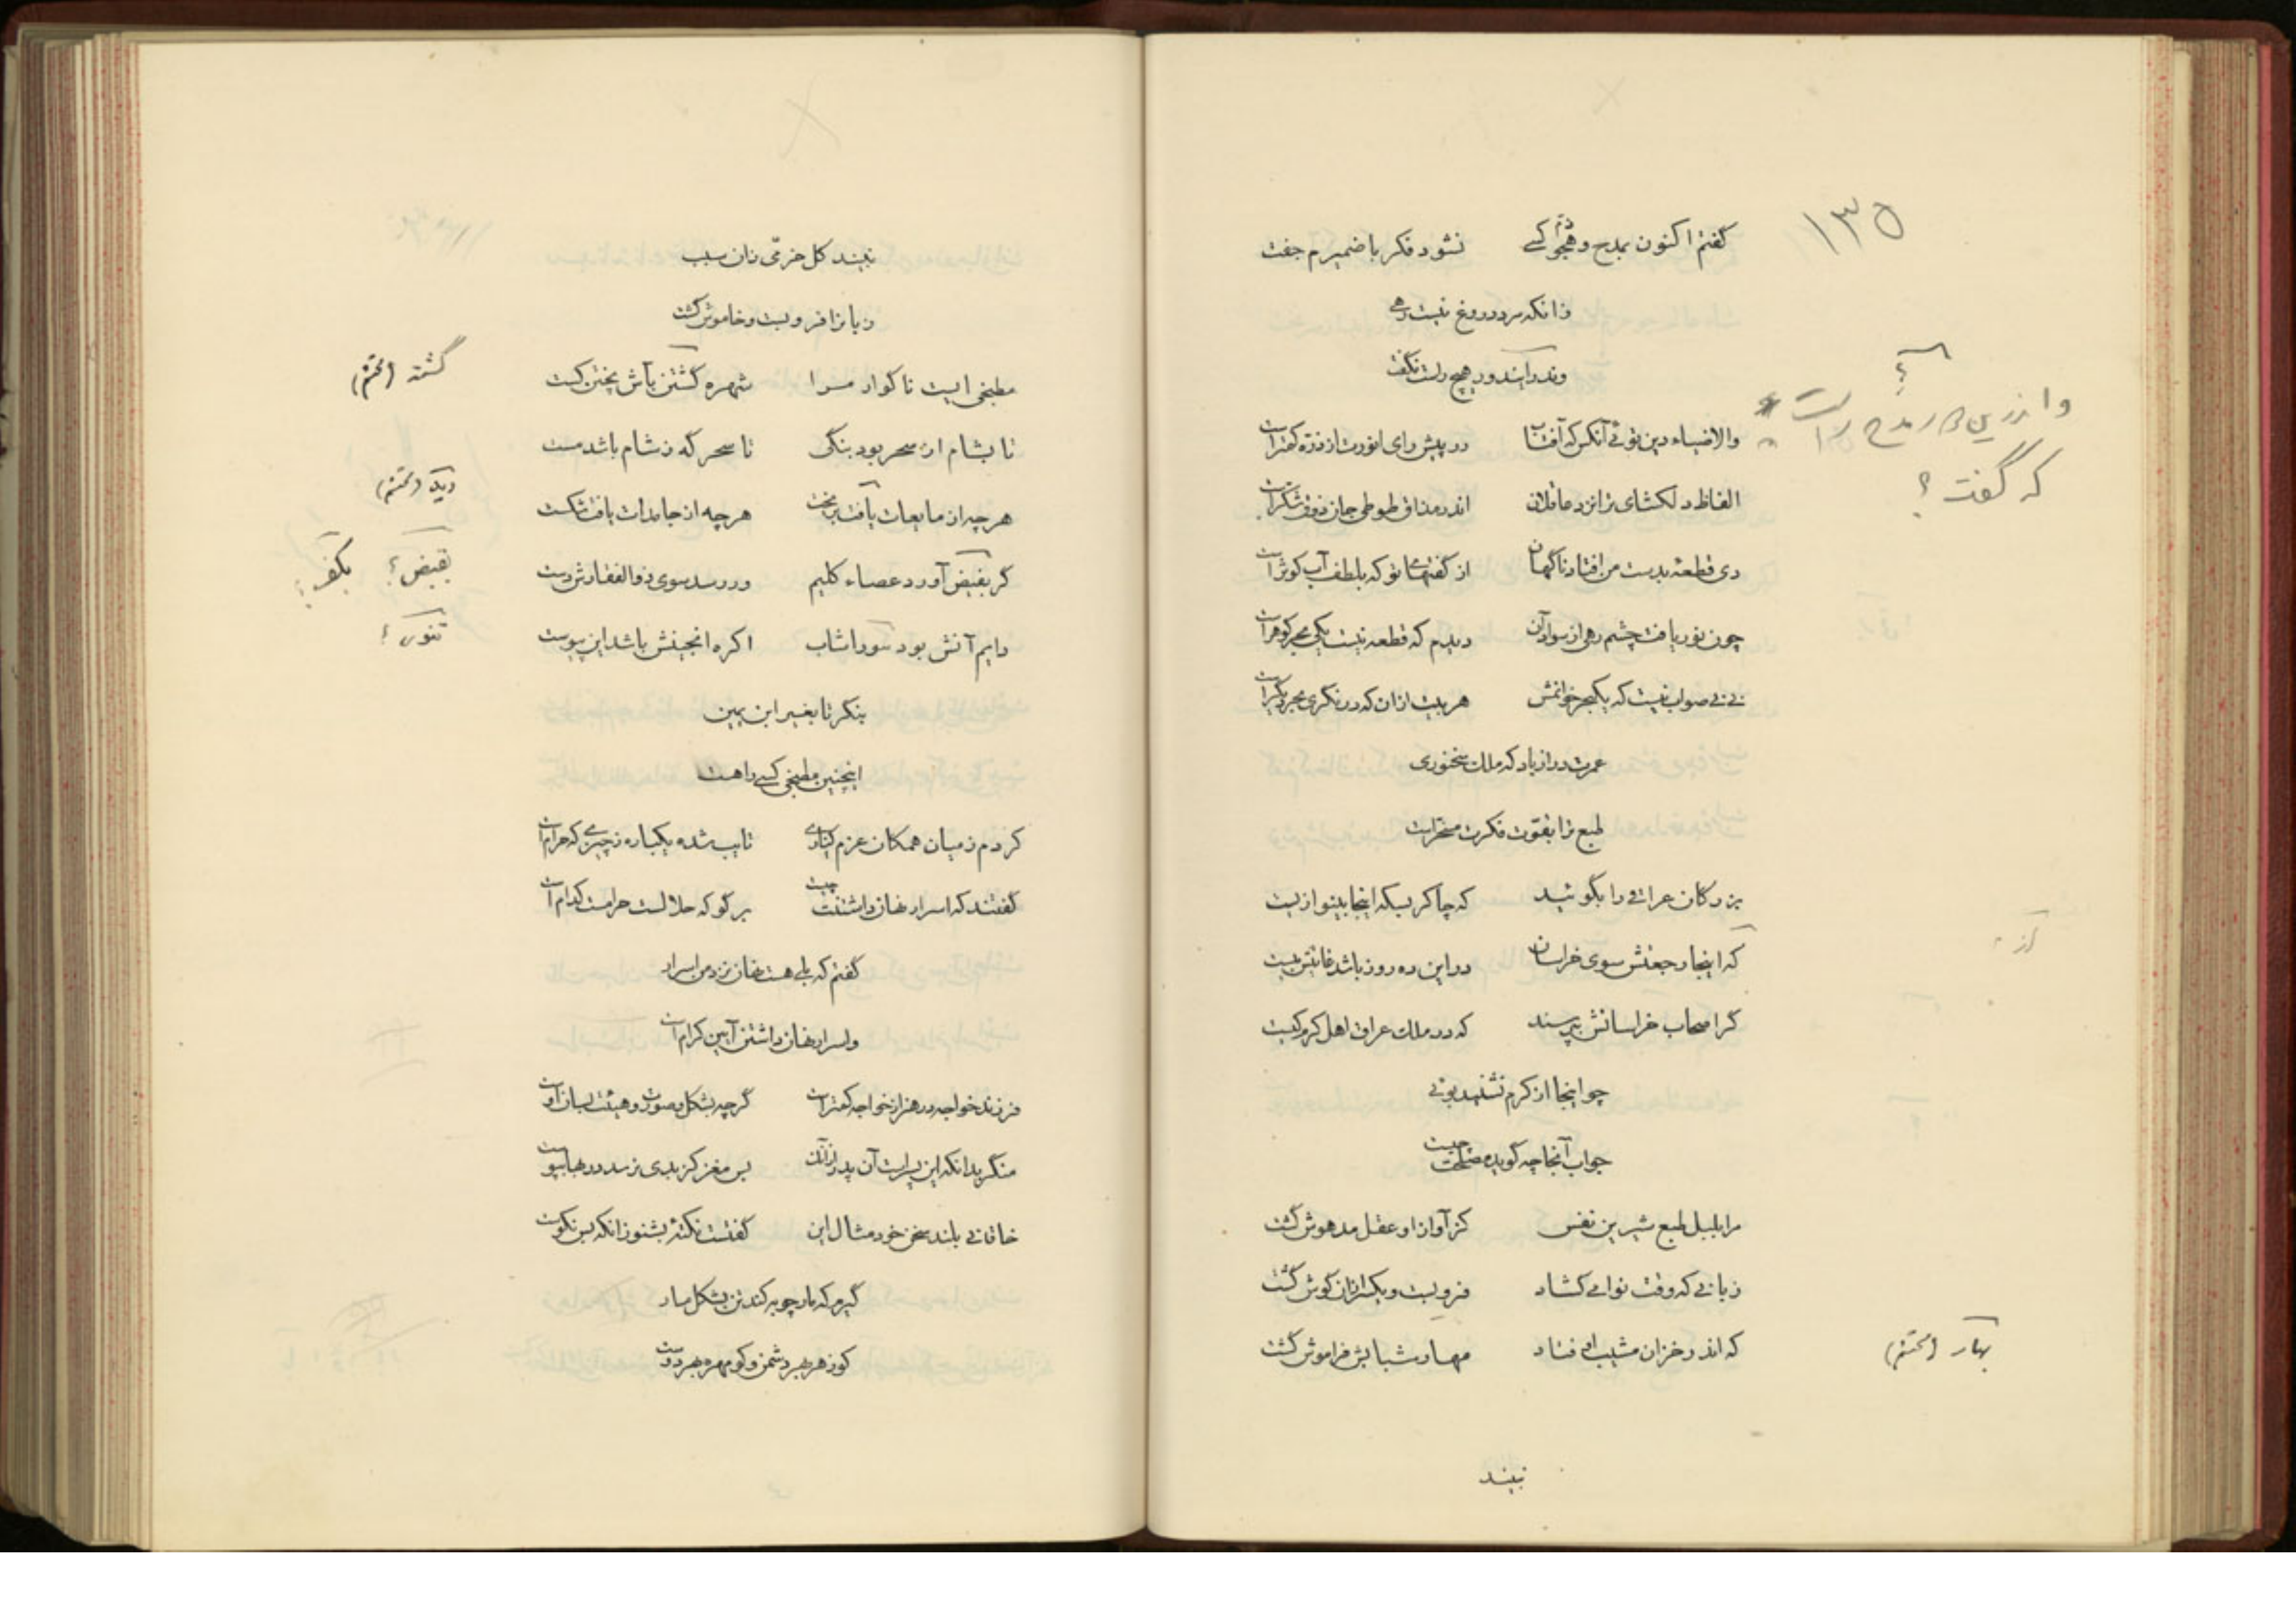 ۱۳۵
گفتم اکنون بمدح و هجو کسی نشود فکر با ضمیرم جفت
زانکه مرد دروغ نیست رهی
واندر آیینه در هیچ راست نگفت
واندرین کار مدح راست
که گفت ؟
والا ضیاء دین توئی آنکس که آفتاب در پیش رای انورت از ذره کمتر است
الفاظ دلکشای ترا نزد عاقلان اندر مذاق طوطی جان ذوق شکر است
دی قطعهٔ بدست من افتاد ناگهان از گفتهای تو که بلطف آب کوثر است
چون نور یافت چشم رهی از سواد آن دیدم که قطعه نیست یکی بحر گوهر است
نی نی صواب نیست که یک بحر خوانمش هر بیت ازان که درنگری بحر دیگر است
عمرت دراز باد که ملک سخنوری
طبع ترا بقوت فکرت مسخر است
بزرگان عراقی را بگوئید که چاکر بسکه اینجا بینوا زیست
که اینجا رجعتش سوی خراسان در این ده روز باشد فاش نیست
گر اصحاب خراسانش بپرسند که در ملک عراق اهل کرم کیست
چو اینجا از کرم نشنید بوئی
جواب آنجا چه گوید مصلحت چیست
مرا بلبل طبع شیرین نفس کز آواز او عقل مدهوش گشت
زبانی که وقت نوا می‌کشاد فروبست و یکسر زبان گوش گشت
که اندر خزان مشیب او فتاد مهار شبابش فراموش گشت
بهار (محتم)
نبیند
نبیند کل خرمی زان سبب
زبانرا فروبست و خاموش گشت
مطبخی ایست ناگوار مرا شهره گشتن بآش پختن کست
گشته (محتم)
تا بشام از سحر بود بنگی تا سحر گه ز شام باشد مست
هر چه از مایعات یافت بریخت هر چه از جامدات یافت شکست
دید (محتم)
گر بقبض آورد عصاء کلیم ور رسد سوی ذوالفقارش دست
بقبض ؟ بکف ؟
دایم آتش بود سورا شاب اگره انجینش باشد این پیوست
تنور ؟
بنگر تا بغیر ابن یمین
اینچنین مطبخی کسی را هست
کردم ز میان همگان عزم کناری تایب شده یکباره ز چیزی که حرام است
گفتند که اسرار نهان داشتنت چیست برگو که حلالست حرامست کدام است
گفتم که بلی هست نهان نزد من اسرار
واسرار نهان داشتن آیین کرام است
فرزند خواجه در هنر از خواجه کمتر است گرچه بشکل و صورت و هیئت بسان اوست
منگر بدانکه این پسر است آن پدر ازآنک بس مغز کز بدی نرسد در بها بپوست
خاقانی بلند سخن خود مثال این گفتست نکتهٔ بشنو زانکه بس نکوست
گیرم که مارچوبه کند تن بشکل مار
کو زهر بهر دشمن و کو مهره بهر دوست